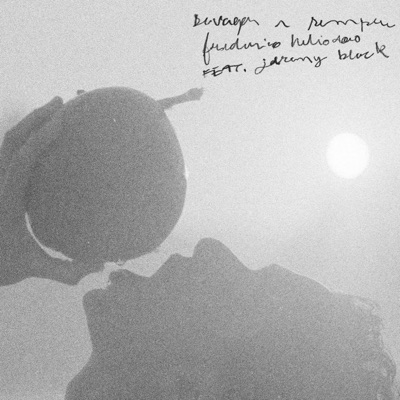 Devagar e sempre
frederico heliodoro
FEAT. jeremy black